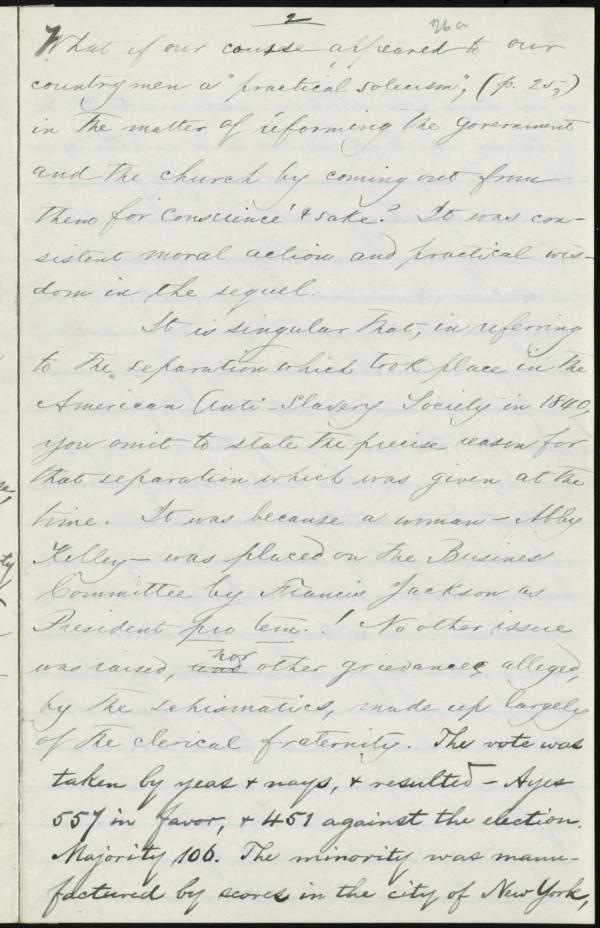 2
26a
What if our course appeared to our
countrymen a "practical solecism", (p. 25,)
in the matter of reforming the government
and the church by coming out from
them for conscience' sake? It was con-
sistent moral action and practical wis-
dom in the sequel.
It is singular that, in referring
to the separation which took place in the
American Anti-Slavery Society in 1840,
you omit to state the precise reason for
that separation which was given at the
time. It was because a woman – Abby
Kelley – was placed on the Business
Committee by Francis Jackson as
President pro tem.! No other issue
nor
was raised, and other grievances alleged,
by the schismatics, made up largely
of the clerical fraternity. The vote was
taken by yeas & nays, & resulted – Ayes
557 in favor, & 451 against the election.
Majority 106. The minority was manu-
factured by scores in the city of New York,